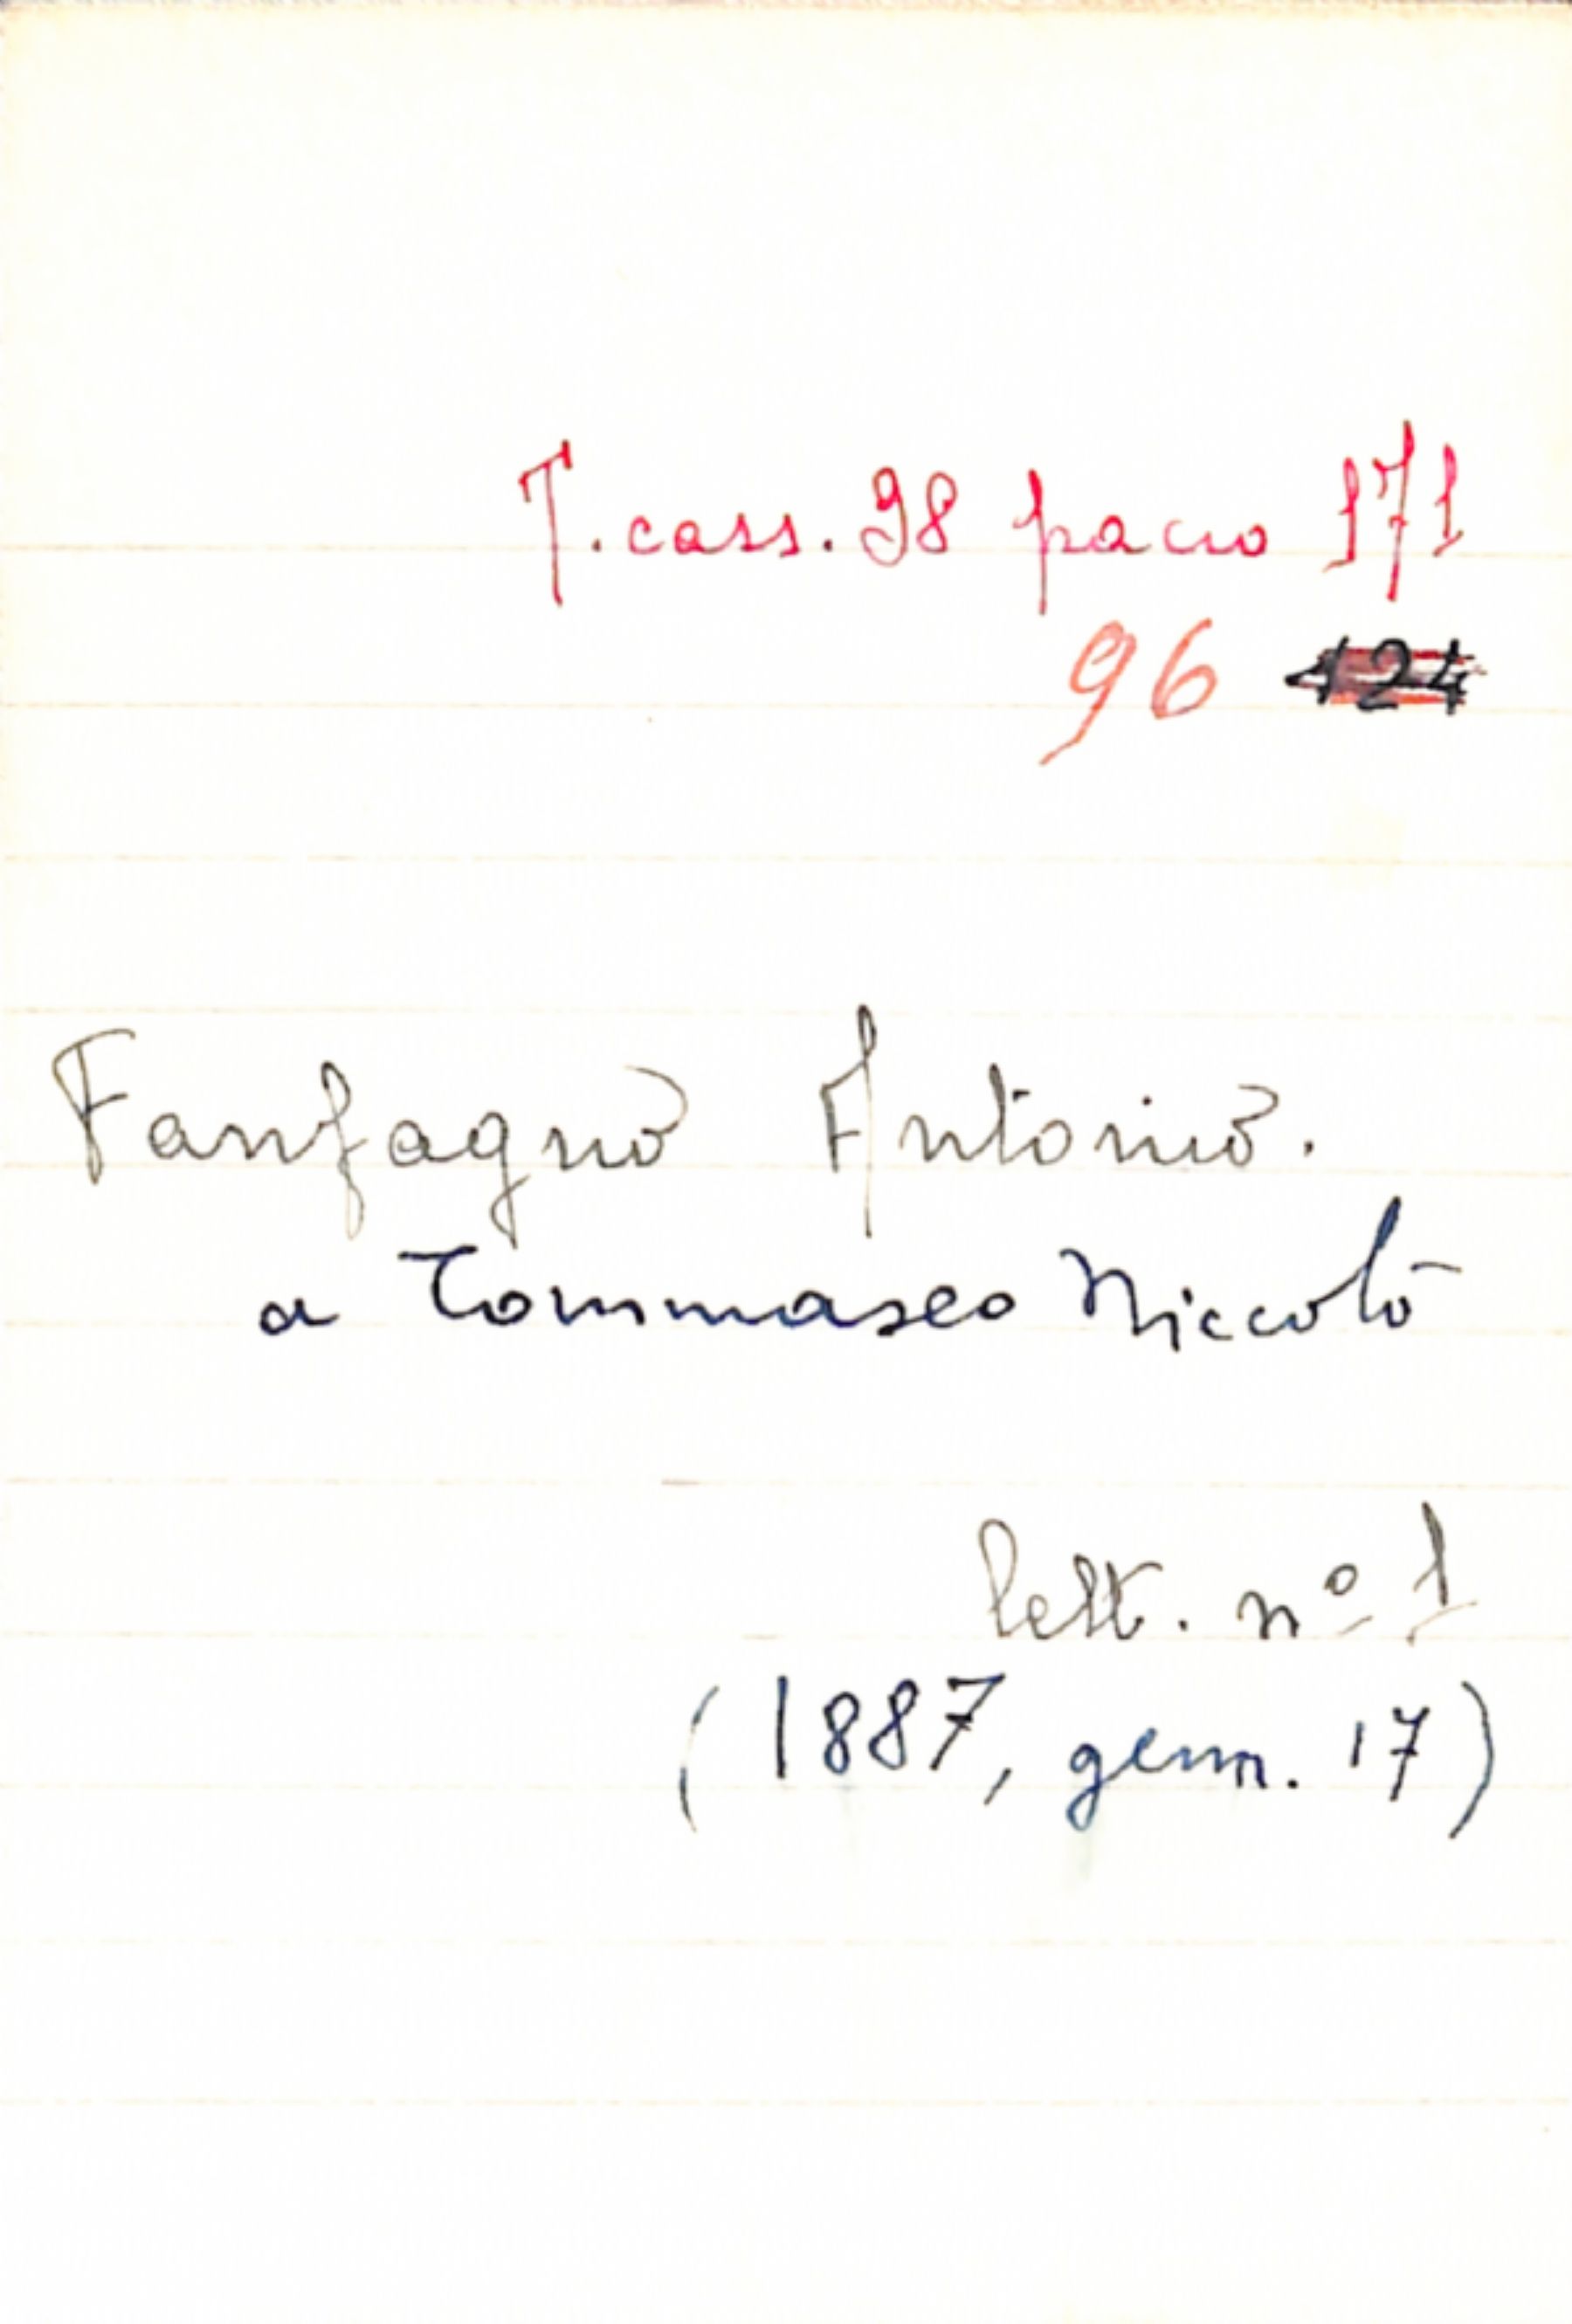 T. cass. 98 pacco 171
96 424
Fanfagnio Antonio.
a Tommaseo Niccolò
lett. nº 1
(1887, genn. 17)